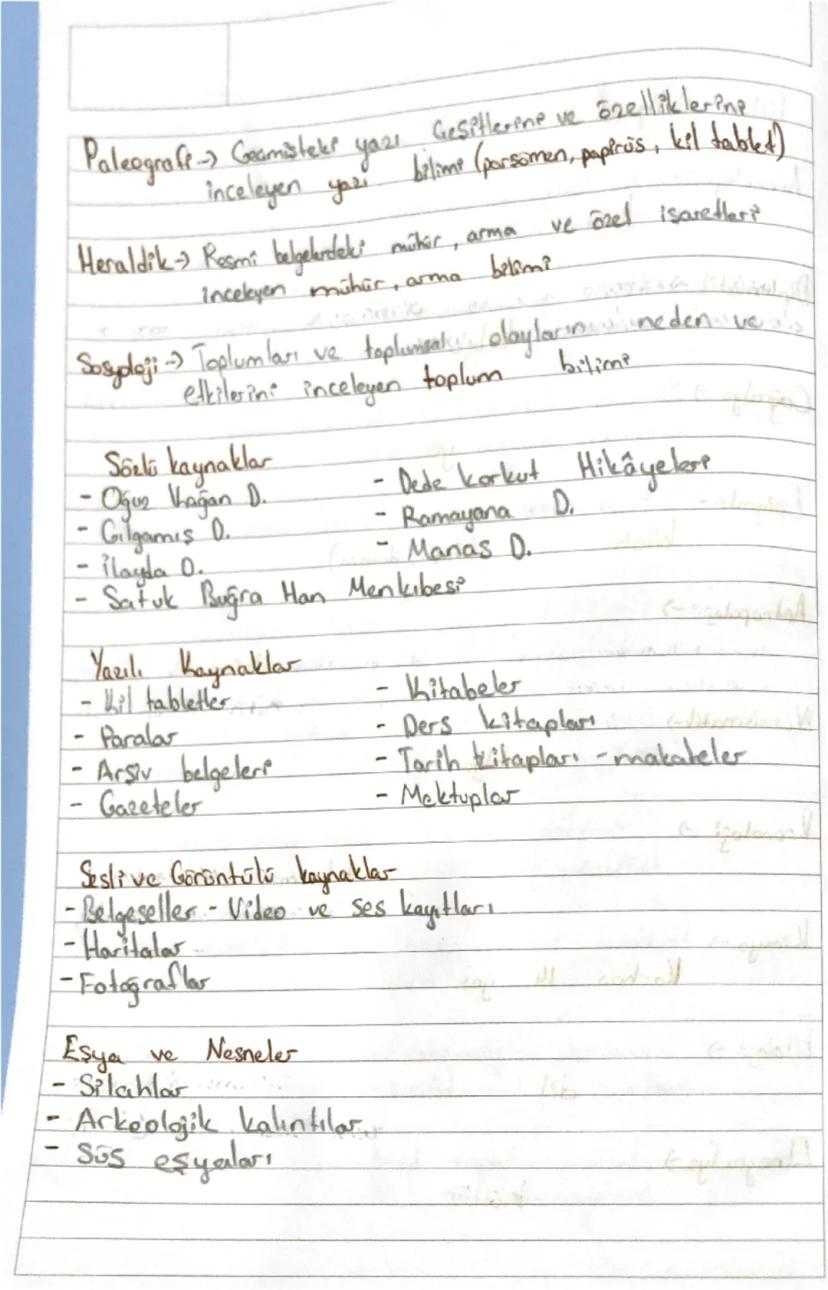 Paleografi → Geçmişteki yazı çeşitlerini ve özelliklerini
inceleyen yazı bilimi (parşömen, papirüs, kil tablet)
Heraldik → Resmi belgelerdeki mühür, arma ve özel işaretleri
inceleyen mühür, arma bilimi
Sosyoloji → Toplumları ve toplumsal olayların neden ve
etkilerini inceleyen toplum bilimi
Sözlü kaynaklar
- Oğuz Kağan D. - Dede Korkut Hikâyeleri
- Gılgamış D. - Ramayana D.
- İlayda D. - Manas D.
- Satuk Buğra Han Menkıbesi
Yazılı Kaynaklar
- Kil tabletler - Kitabeler
- Paralar - Ders kitapları
- Arşiv belgeleri - Tarih kitapları - makaleler
- Gazeteler - Mektuplar
Sesli ve Görüntülü kaynaklar
- Belgeseller - Video ve ses kayıtları
- Haritalar
- Fotoğraflar
Eşya ve Nesneler
- Silahlar
- Arkeolojik kalıntılar
- Süs eşyaları